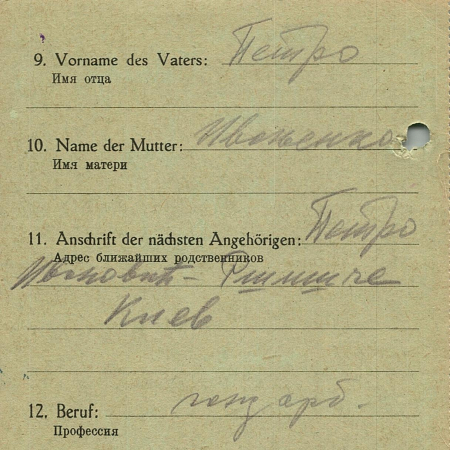 9. Vorname des Vaters: Петро
Имя отца
10. Name der Mutter:
Имя матери
11. Anschrift der nächsten Angehörigen: Петро
Адрес ближайших родственников
Киев
12. Beruf:
Профессия